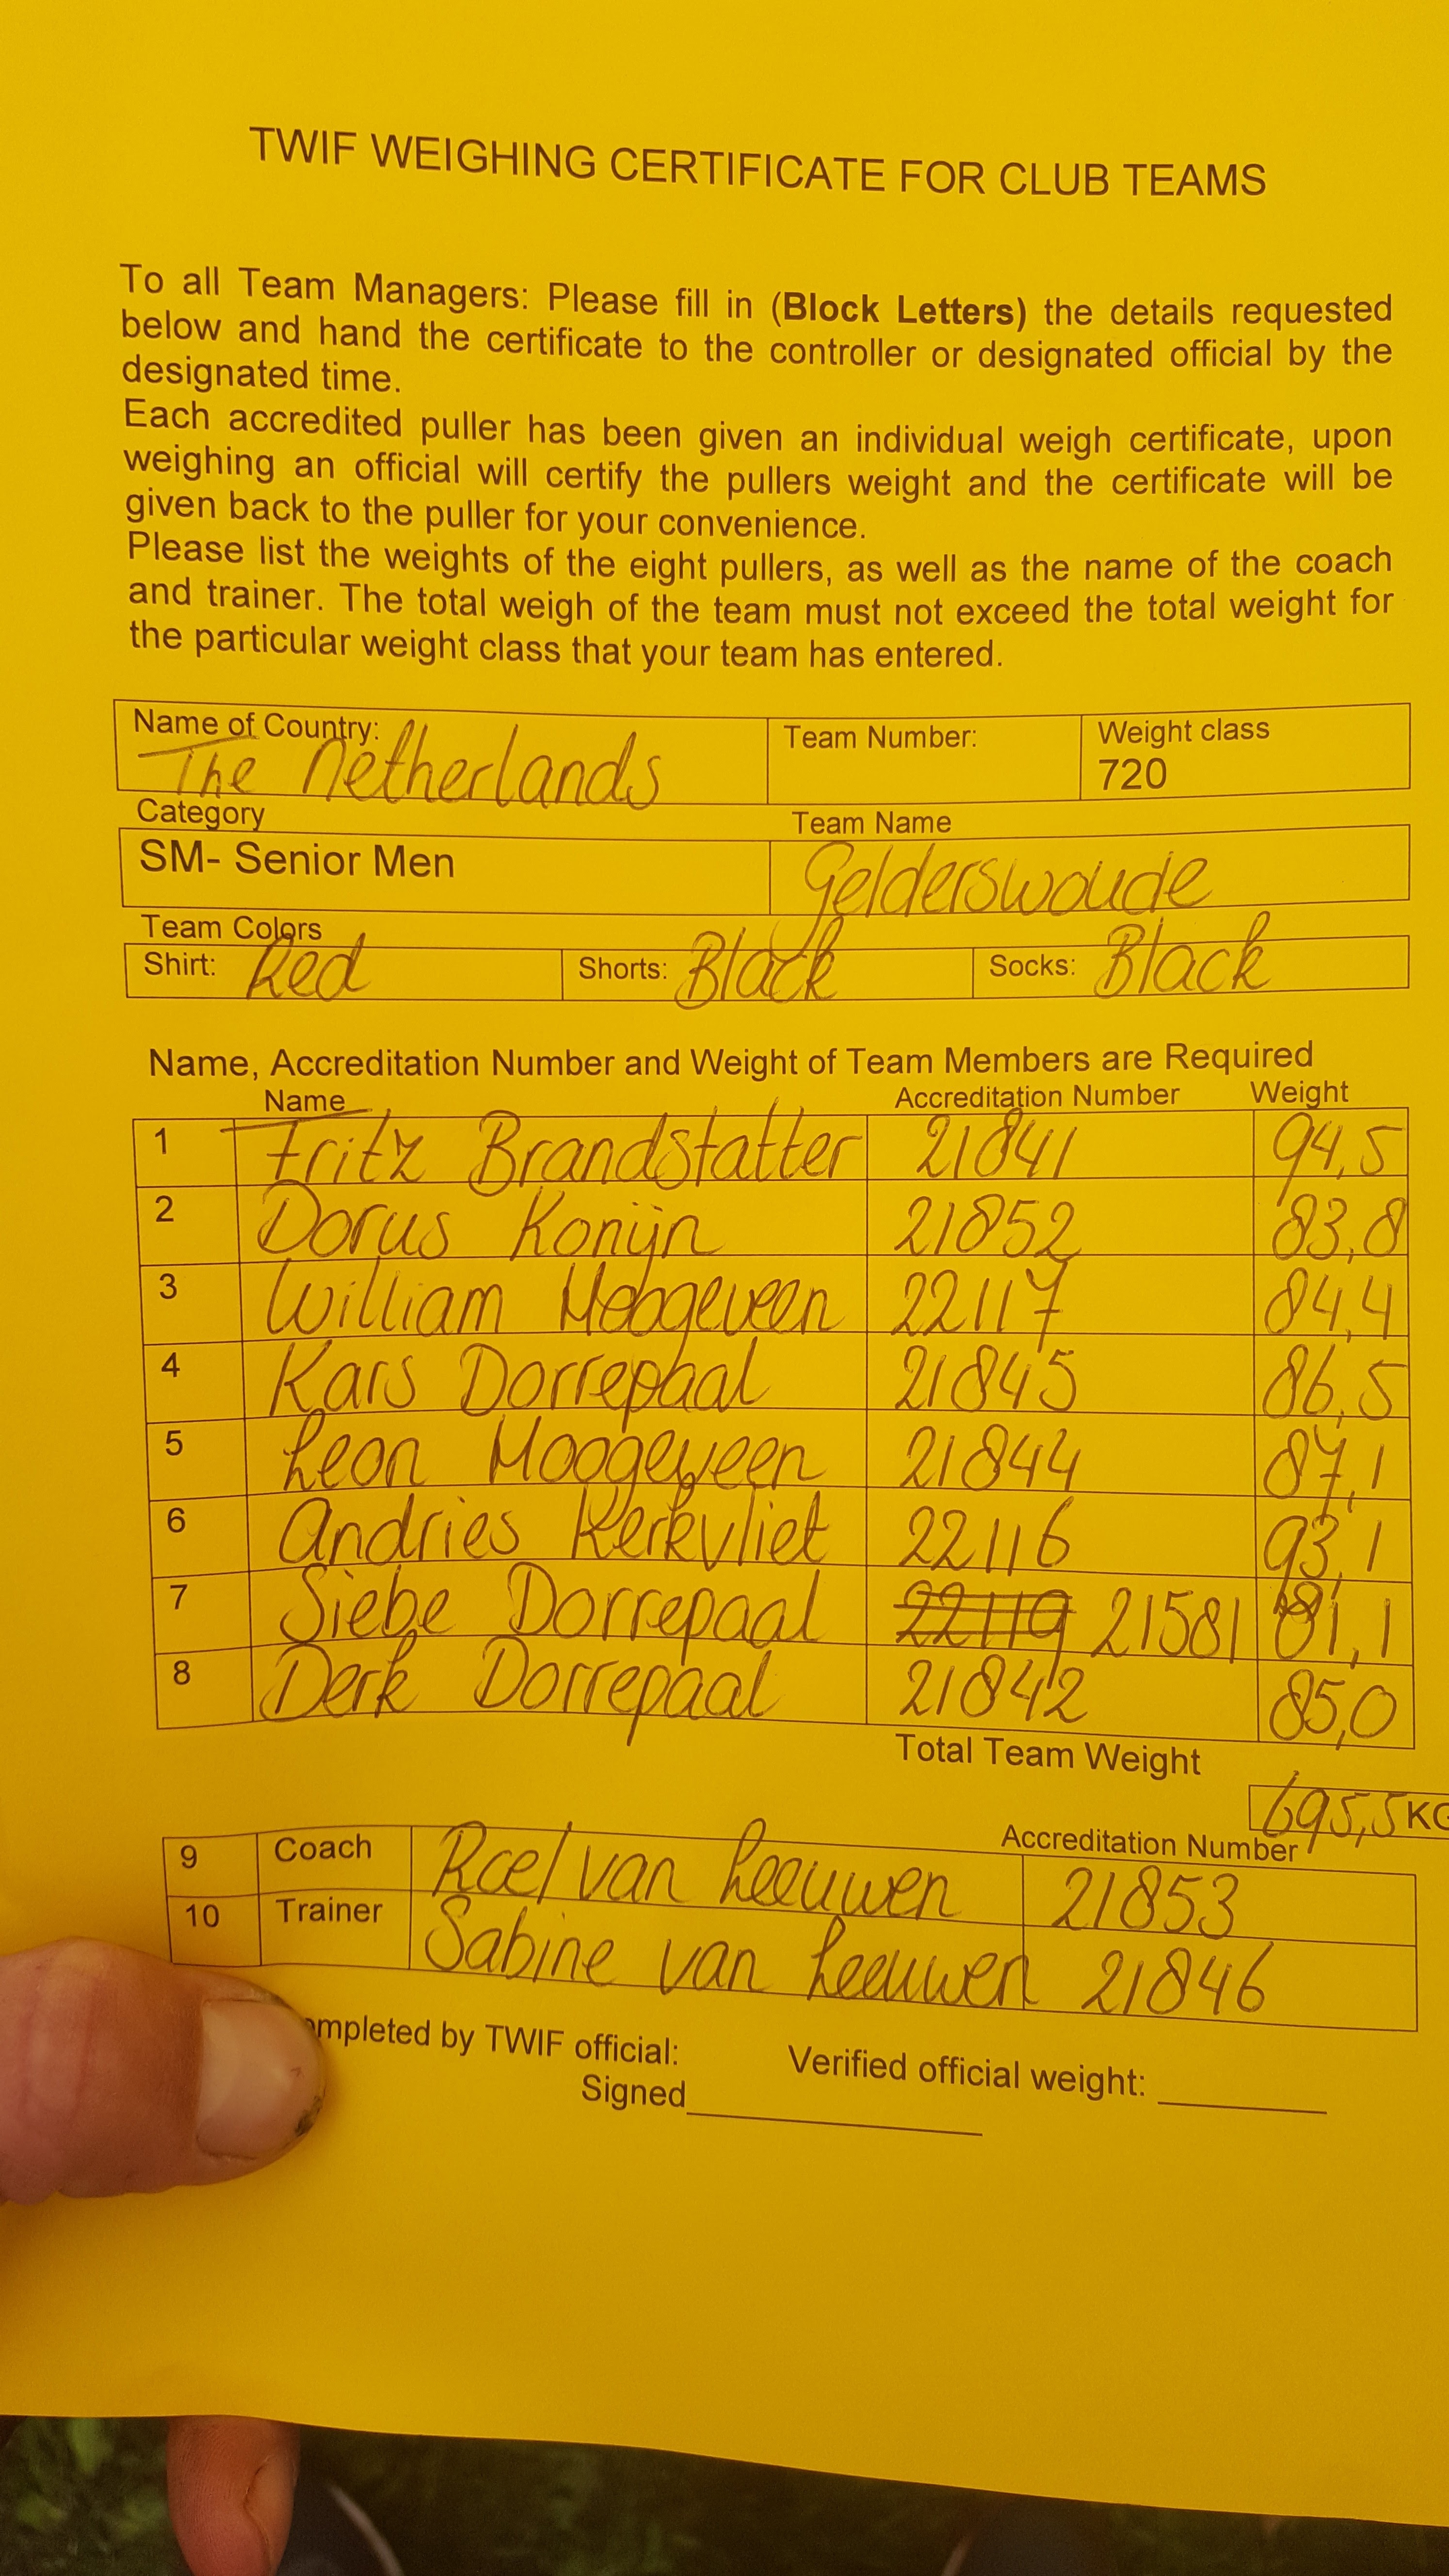 TWIF WEIGHING CERTIFICATE FOR CLUB TEAMS
To all Team Managers: Please fill in (Block Letters) the details requested
below and hand the certificate to the controller or designated official by the
designated time.
Each accredited puller has been given an individual weigh certificate, upon
weighing an official will certify the pullers weight and the certificate will be
given back to the puller for your convenience.
Please list the weights of the eight pullers, as well as the name of the coach
and trainer. The total weigh of the team must not exceed the total weight for
the particular weight class that your team has entered.
Name of Country: Team Number: Weight class
The Netherlands 720
Category Team Name
SM- Senior Men Gelderswoude
Team Colors
Shirt: Red Shorts: Black Socks: Black
Name, Accreditation Number and Weight of Team Members are Required
Name Accreditation Number Weight
1 Fritz Brandstatter 21841 94,5
2 Dorus Konijn 21852 83,8
3 William Hoogeveen 22117 84,4
4 Kars Dorrepaal 21845 86,5
5 Leon Hoogeveen 21844 87,1
6 Andries Kerkvliet 22116 93,1
7 Siebe Dorrepaal 22119 21581 81,1
8 Derk Dorrepaal 21842 85,0
Total Team Weight
695,5 KG
Accreditation Number
9 Coach Roel van Leeuwen 21853
10 Trainer Sabine van Leeuwen 21846
by TWIF official: Verified official weight:
Signed